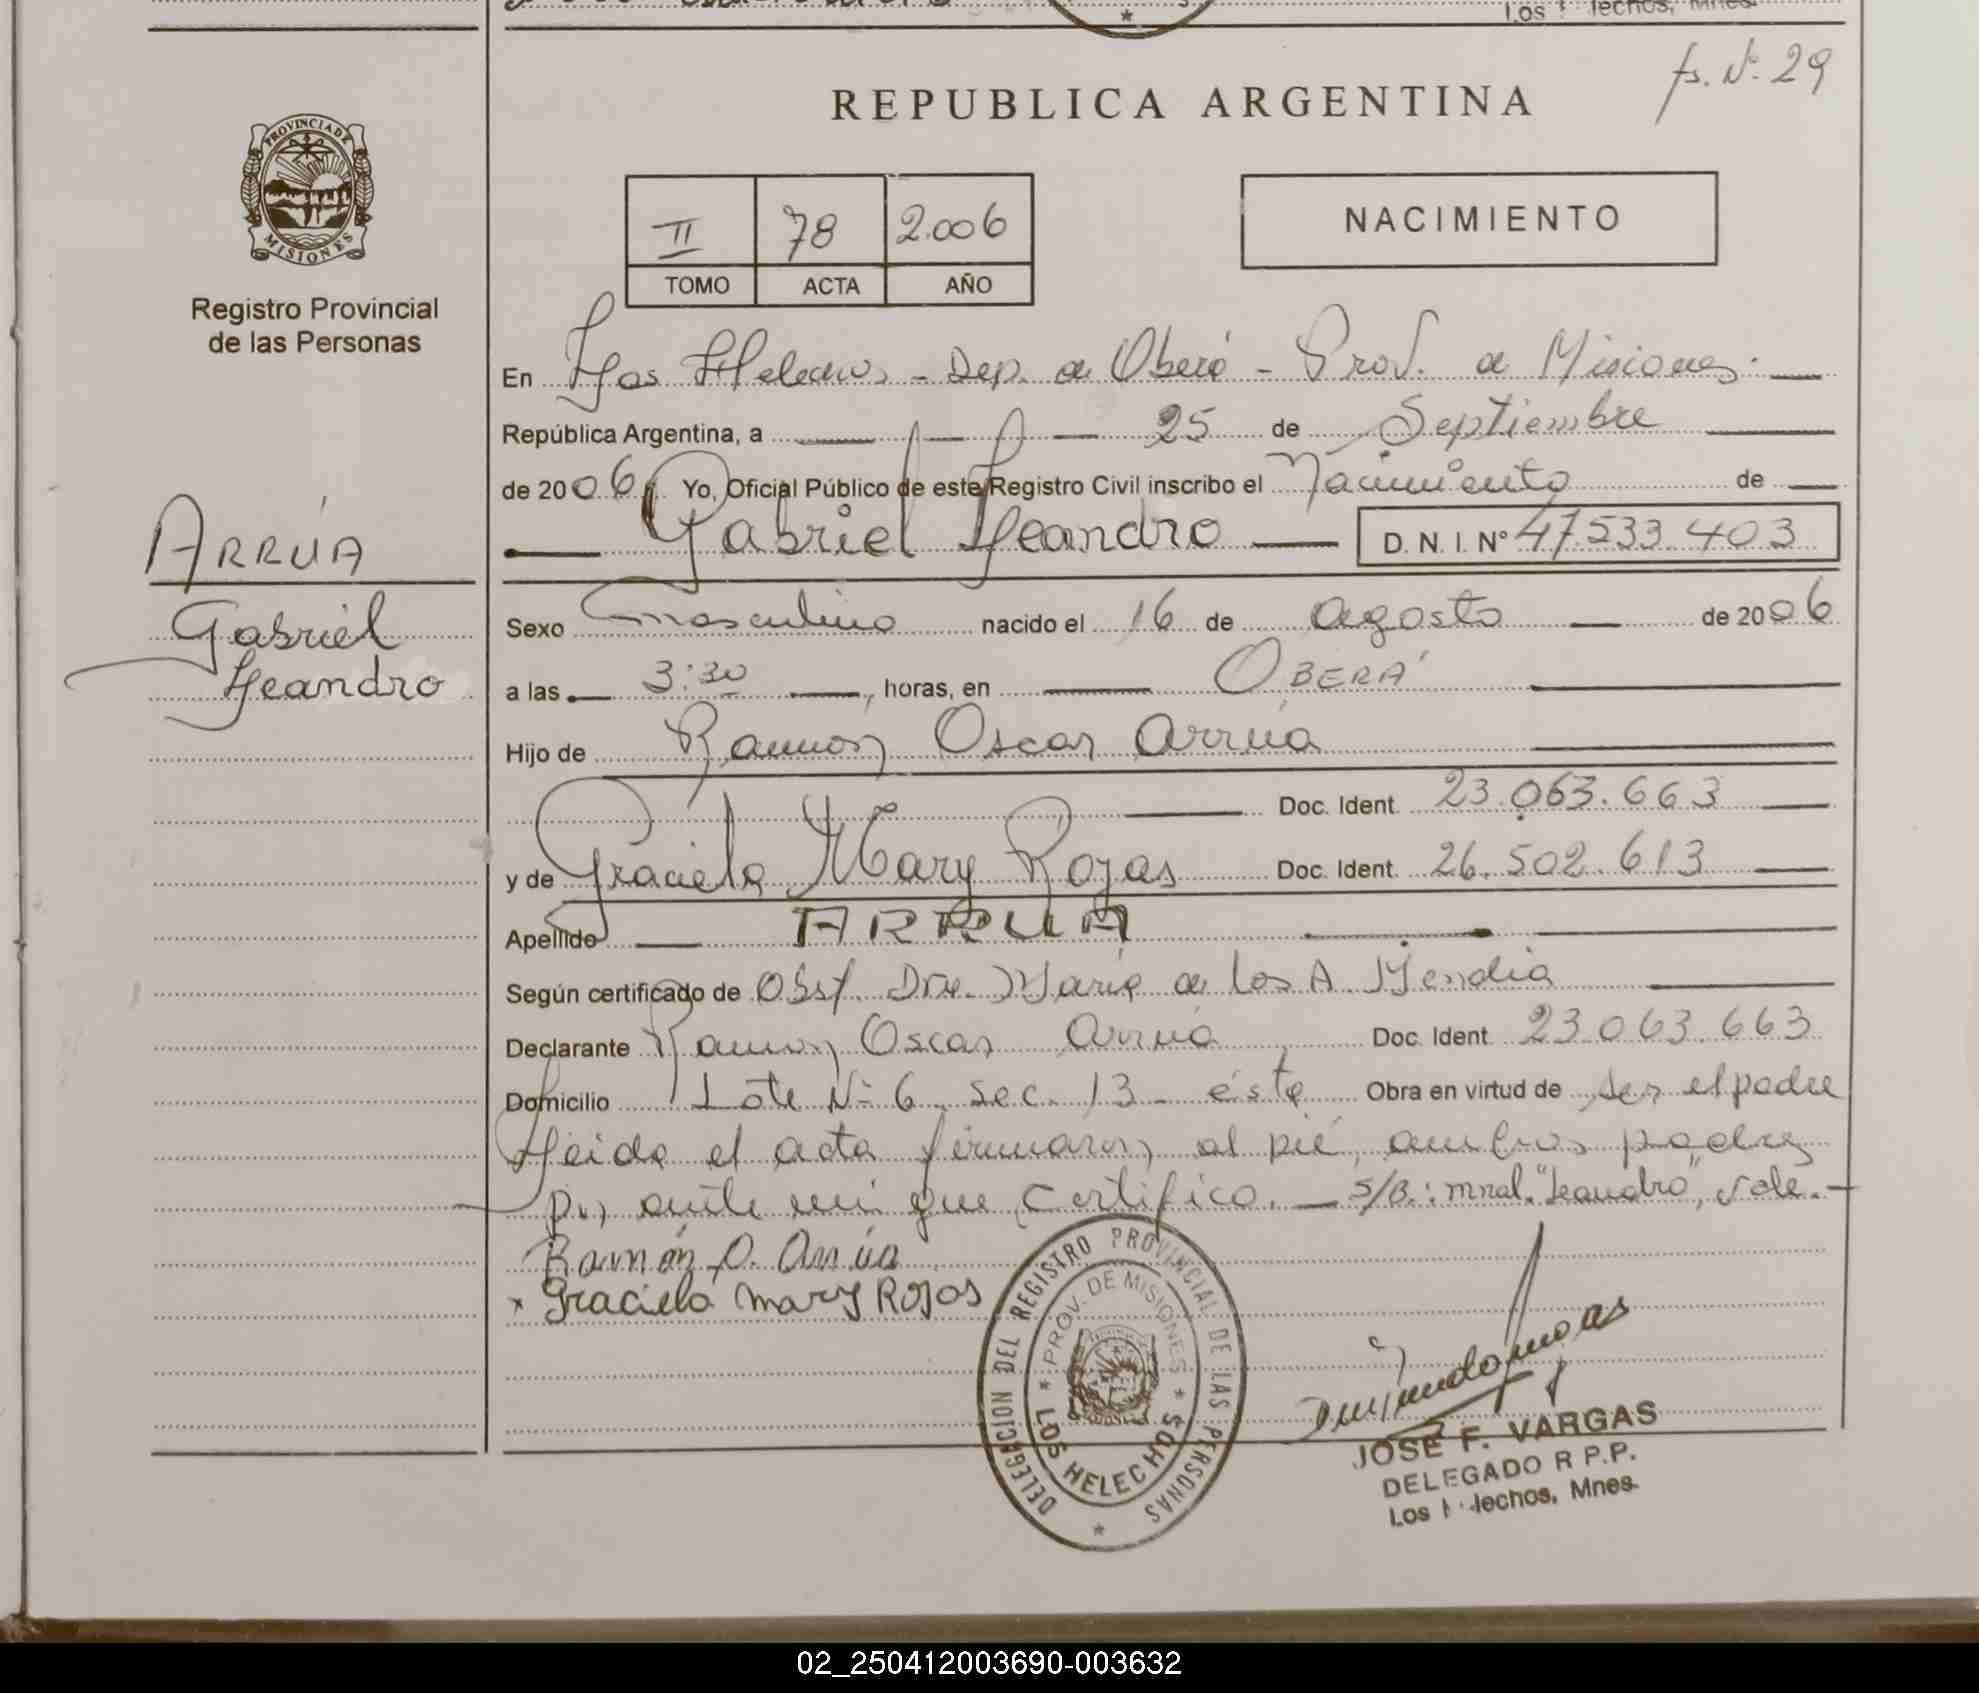 fs. Nº 29
REPUBLICA ARGENTINA
PROVINCIA DE MISIONES
Registro Provincial
de las Personas
II 78 2.006
TOMO ACTA AÑO
NACIMIENTO
En Los Helechos - Dep. de Oberá - Prov. de Misiones.
República Argentina, a 25 de Septiembre
de 2006 Yo, Oficial Público de este Registro Civil inscribo el Nacimiento de
Gabriel Leandro D.N.I. Nº 47.533.403
ARRÚA
Gabriel
Leandro
Sexo masculino nacido el 16 de agosto de 2006
a las 3:30, horas, en OBERÁ
Hijo de Ramón Oscar Arrúa
Doc. Ident. 23.063.663
y de Graciela Mary Rojas Doc. Ident. 26.502.613
Apellido ARRUA
Según certificado de Obst. Dra. María de los A.
Declarante Ramón Oscar Arrúa Doc. Ident. 23.063.663
Domicilio Lote Nº 6 sec. 13 - ésta Obra en virtud de ser el padre
Leida el acta firmaron, al pié, ambos padres
por ante mí que certifico. - S/B.: mnal. "Leandro", vale. -
Ramón O. Arrúa
x Graciela mary Rojas
DELEGACION DEL REGISTRO PROVINCIAL DE LAS PERSONAS
* PROV. DE MISIONES * LOS HELECHOS
JOSE F. VARGAS
DELEGADO R.P.P.
Los Helechos, Mnes.
02_250412003690-003632